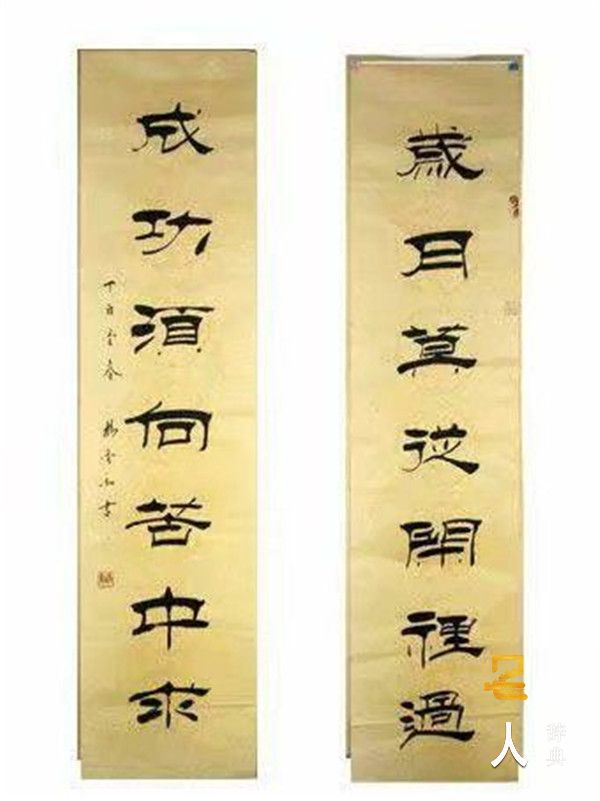 歲月莫從閑裡過
成功須向苦中求
丁酉
春
書
名人
辞典